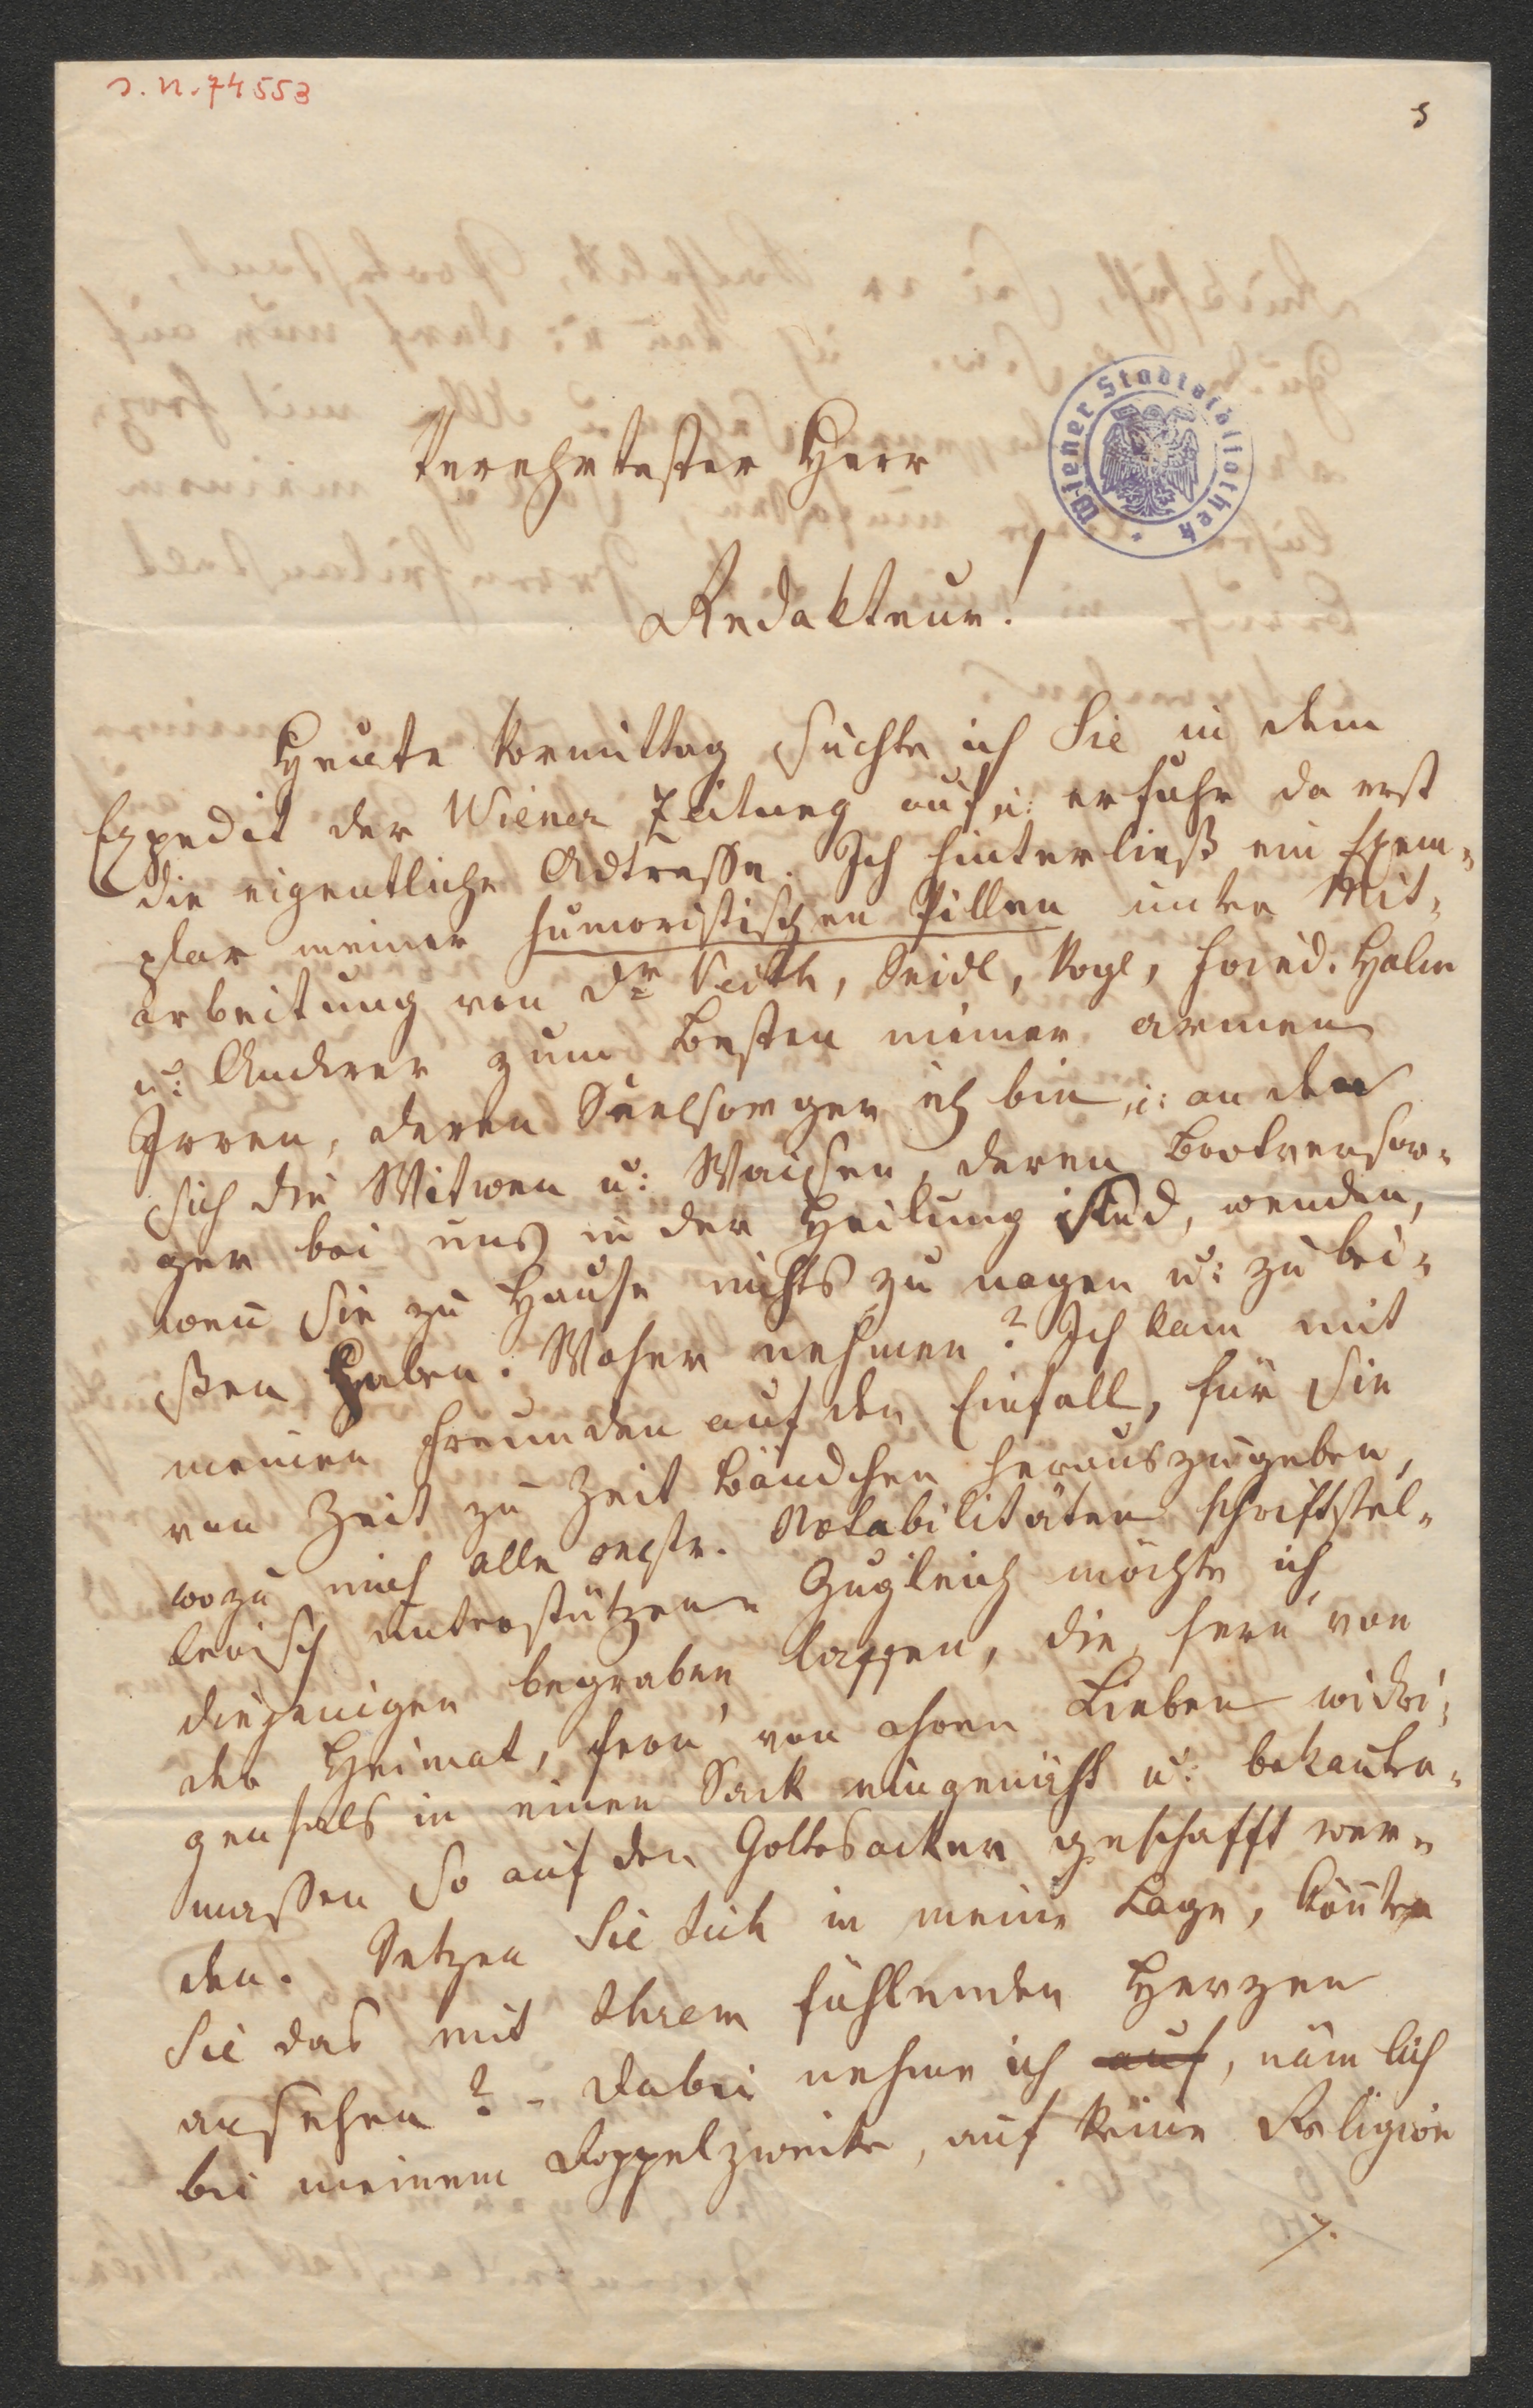 J. N. 74553
5
Wiener Stadtbibliothek
Verehrtester Herr
Redakteur!
Heute Vormittag suchte ich Sie in dem
Expedit der Wiener Zeitung auf u: erfuhr da erst
die eigentliche Adtresse. Ich hinterließ ein Exem-
plar meiner humoristischen Pillen unter Mit-
arbeitung von Dr Veith, Seidl, Vogl, Fried. Halm
u: Anderer zum Besten meiner armen
Irren, deren Seelsorger ich bin, u: an den
sich die Witwen u: Waisen, deren Brotversor-
ger bei uns in der Heilung sind, wenden,
wen̅ sie zu Hause nichts zu nagen u: zu bei-
ßen haben. Woher nehmen? Ich kam mit
meinen Freunden auf den Einfall, für sie
von Zeit zu Zeit Bändchen herauszugeben,
wozu mich alle oestr. Notabilitäten schriftstel-
lerisch unterstützen. Zugleich möchte ich
diejenigen begraben lassen, die, fern von
der Heimat, fern von ihren Lieben widri-
genfals in einen Sack eingenäht u: bekan̅ter-
massen so auf den Gottesacker geschafft wer-
den. Setzen Sie Sich in meine Lage, kön̅ten
Sie das mit Ihrem fühlenden Herzen
ansehen? – Dabei nehme ich auf, nämlich
bei meinem Doppelzwecke, auf keine Religion